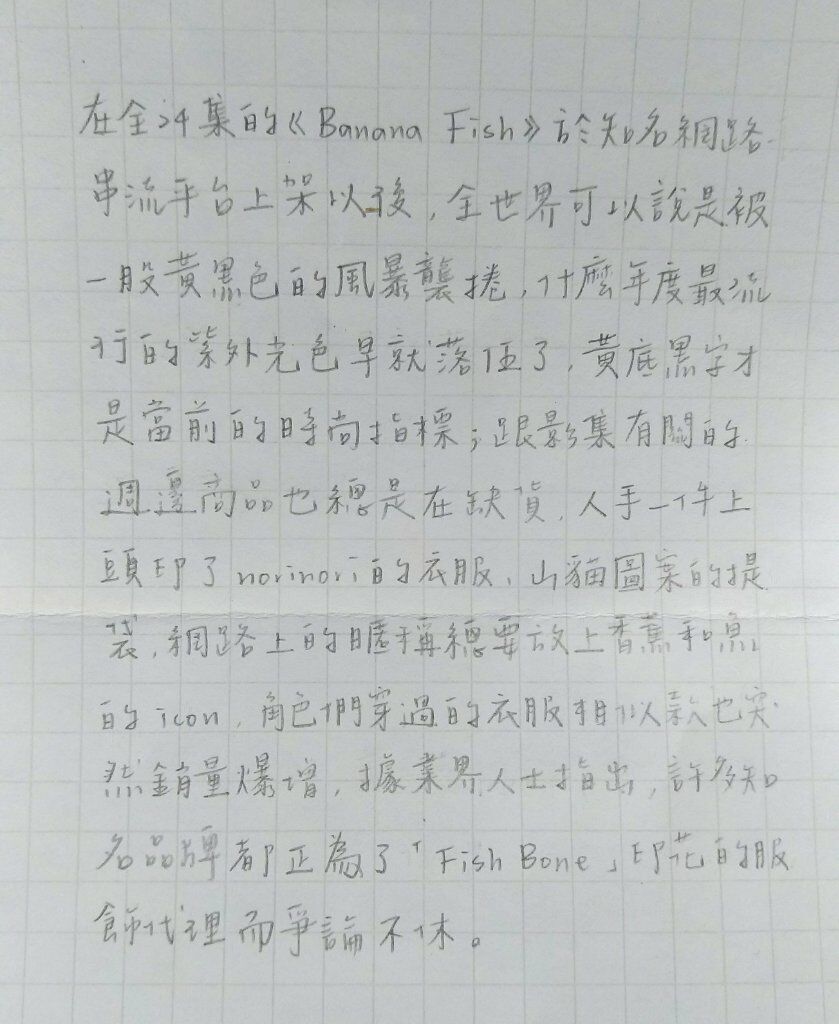 在全24集的《Banana Fish》於知名網路
串流平台上架以後,全世界可以說是被
一股黃黑色的風暴襲捲,什麼年度最流
行的紫外光色早就落伍了,黃底黑字才
是當前的時尚指標;跟影集有關的
週邊商品也總是在缺貨,人手一件上
頭印了norinori的衣服、山貓圖案的提
袋,網路上的暱稱總要放上香蕉和魚
的icon,角色們穿過的衣服相似款也突
然銷量爆增,據業界人士指出,許多知
名品牌都正為了「Fish Bone」印花的服
飾代理而爭論不休。